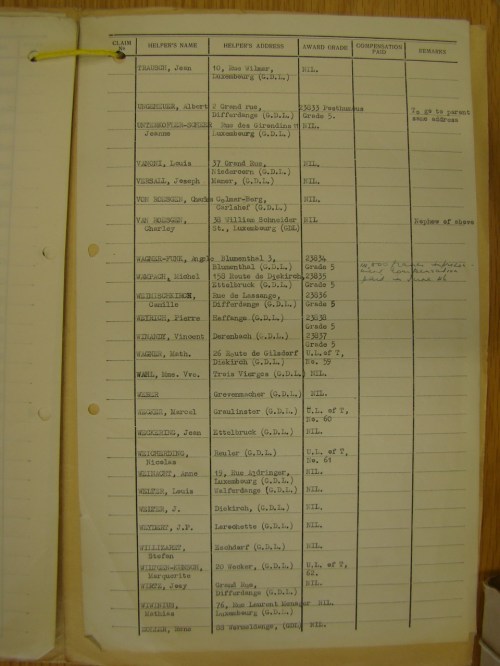 CLAIM No HELPER'S NAME HELPER'S ADDRESS AWARD GRADE COMPENSATION PAID REMARKS
TRAUSCH, Jean 10, Rue Wilmar, NIL.
Luxembourg (G.D.L.)
UNGEHEUER, Albert 2 Grand rue, 23833 Posthumous To go to parent
Differdange (G.D.L.) Grade 5. same address
Rue des Girondins NIL.
Jeanne Luxembourg (G.D.L.)
VAMONT, Louis 37 Grand Rue, NIL.
Niedercorn (G.D.L.)
VERSALL, Joseph (G.D.L.) NIL.
VON ROESGEN, Charles Colmar-Berg, NIL.
Carlshof (G.D.L.)
VAN ROESGEN, 38 William Schneider NIL Nephew of above
Charley St., Luxembourg (GDL)
WAGNER-FUNK, Angelo Blumenthal 3, 23834
Blumenthal (G.D.L.) Grade 5
Michel 158 Route de Diekirch, 23835
Ettelbruck (G.D.L.) Grade 5
Rue de Lassange, 23836
Camille Differdange (G.D.L.) Grade 5
WEYRICH, Pierre Heffange (G.D.L.) 23838
Grade 5
WIRARDY, Vincent Derenbach (G.D.L.) 23837
Grade 5
WAGNER, Math. 26 Route de Gilsdorf U.L. of T,
Diekirch (G.D.L.) No. 59
WAHL, Mme. Vve. Trois Vierges (G.D.L.) NIL.
WEBER Grevenmacher (G.D.L.) NIL.
Marcel Greulinster (G.D.L.) U.L. of T,
No. 60
WECKERING, Jean Ettelbruck (G.D.L.) NIL.
Reuler (G.D.L.) U.L. of T,
Nicolas No. 61
Anne 19, Rue NIL.
Luxembourg (G.D.L.)
WELTER, Louis Walferdange (G.D.L.) NIL.
J. Diekirch, (G.D.L.) NIL.
J.P. Larochette (G.D.L.) NIL.
(G.D.L.) NIL.
Stefan
20 Wecker, (G.D.L.) U.L. of T,
Marguerite 62.
WIRTZ, Jemy Grand Rue, NIL.
Differdange (G.D.L.)
76, Rue Laurent NIL.
Mathias Luxembourg (G.D.L.)
(GDL) NIL.